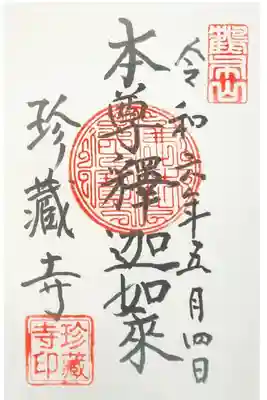 令和六年五月四日
本尊釋迦如來
珍藏寺
珍藏
寺印